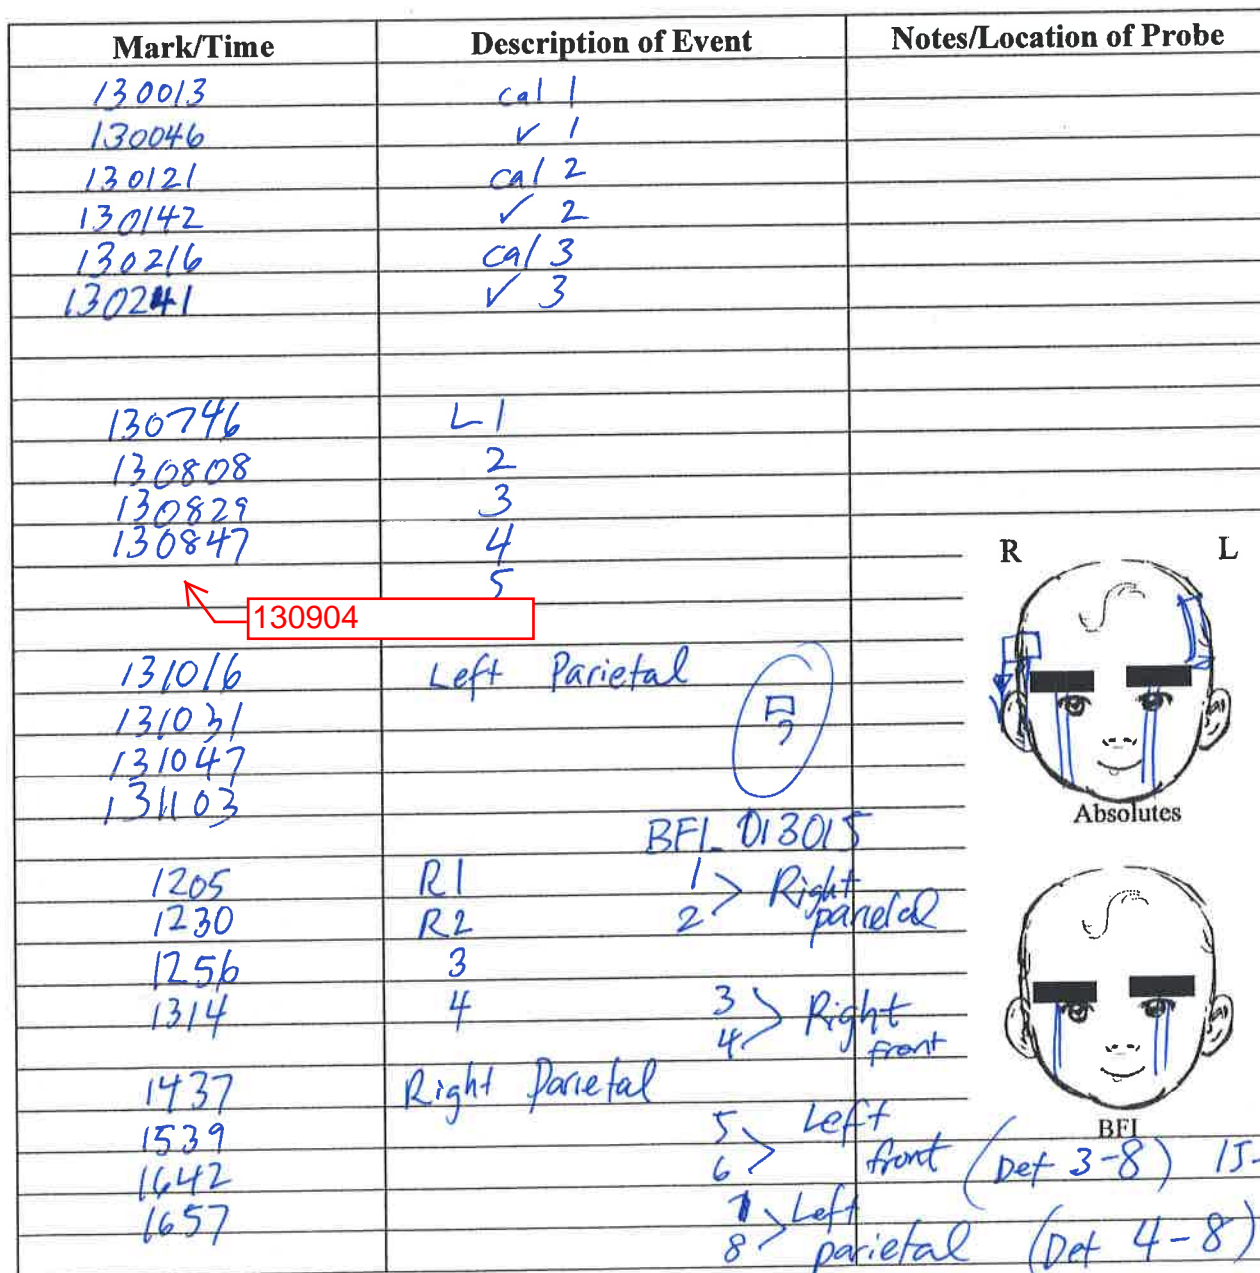 Mark/Time Description of Event Notes/Location of Probe
130013 cal 1
130046 ✓ 1
130121 cal 2
130142 ✓ 2
130216 cal 3
130241 ✓ 3
130746 L1
130808 2
130829 3
130847 4
5
130904
R L
131016 Left Parietal
131031
131047
131103
Absolutes
BFI_013015
1205 R1 1 > Right
1230 R2 2 parietal
1256 3
1314 4 3 > Right
4 front
1437 Right Parietal
1539 5 > Left
BFI
1642 6 front (Det 3-8) 15-
1657 7 > Left
8 parietal (Det 4-8)